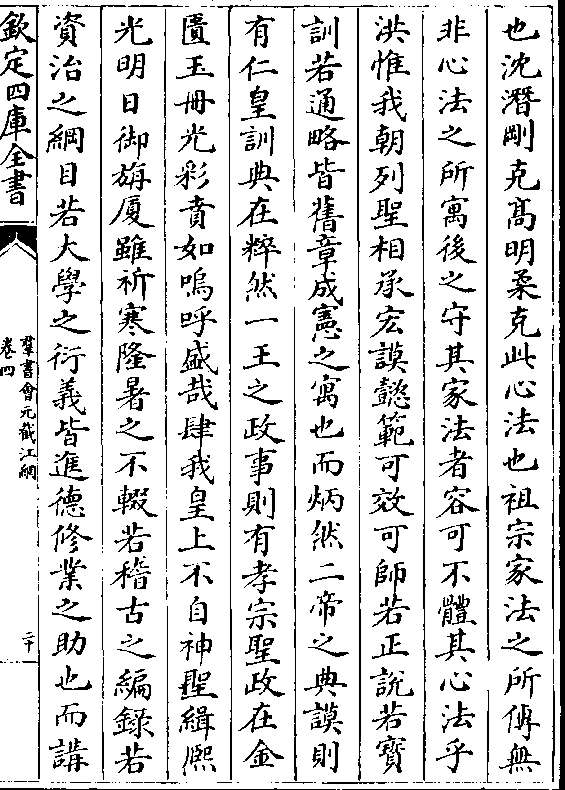 也沈潛剛克髙明柔克此心法也祖宗家法之所傳無
非心法之所寓後之守其家法者容可不體其心法乎
洪惟我朝列聖相承宏謨懿範可效可師若正説若寳
訓若通略皆舊章成憲之寓也而炳然二帝之典謨則
有仁皇訓典在粹然一王之政事則有孝宗聖政在金
匱玉冊光彩賁如嗚呼盛哉肆我皇上不自神聖緝熈
光明日御旃厦雖祈寒隆暑之不輟若稽古之編錄若
資治之綱目若大學之衍義皆進德修業之助也而講
欽定四庫全書
羣書會元截江網
卷四
二十